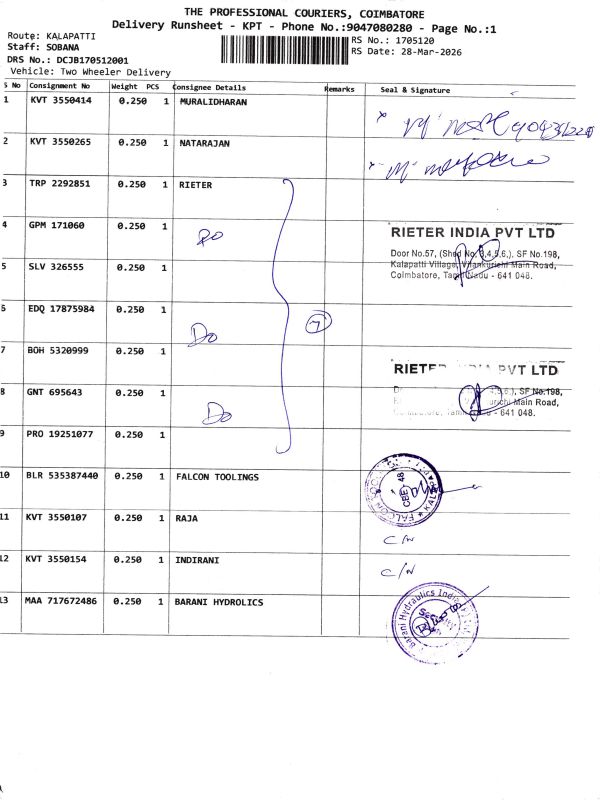 THE PROFESSIONAL COURIERS, COIMBATORE
Delivery Runsheet - KPT - Phone No.:9047080280 - Page No.:1
Route: KALAPATTI
Staff: SOBANA
RS No.: 1705120
DRS No.: DCJB170512001
RS Date: 28-Mar-2026
Vehicle: Two Wheeler Delivery
S No Consignment No Weight PCS Consignee Details Remarks Seal & Signature
1 KVT 3550414 0.250 1 MURALIDHARAN
2 KVT 3550265 0.250 1 NATARAJAN
3 TRP 2292851 0.250 1 RIETER
4 GPM 171060 0.250 1 Do
RIETER INDIA PVT LTD
Door No.57, (Shed No. 3,4,5,6,), SF No.198,
Kalapatti Village, Vilankurichi Main Road,
Coimbatore, Tamil Nadu - 641 048.
5 SLV 326555 0.250 1
6 EDQ 17875984 0.250 1
Do
7
7 BOH 5320999 0.250 1
RIETER INDIA PVT LTD
8 GNT 695643 0.250 1
4,5,6,), SF No.198,
urichi Main Road,
- 641 048.
Do
9 PRO 19251077 0.250 1
10 BLR 535387440 0.250 1 FALCON TOOLINGS
FALCON
CBE - 48
11 KVT 3550107 0.250 1 RAJA
C/N
12 KVT 3550154 0.250 1 INDIRANI
C/N
13 MAA 717672486 0.250 1 BARANI HYDROLICS
Barani Hydraulics India